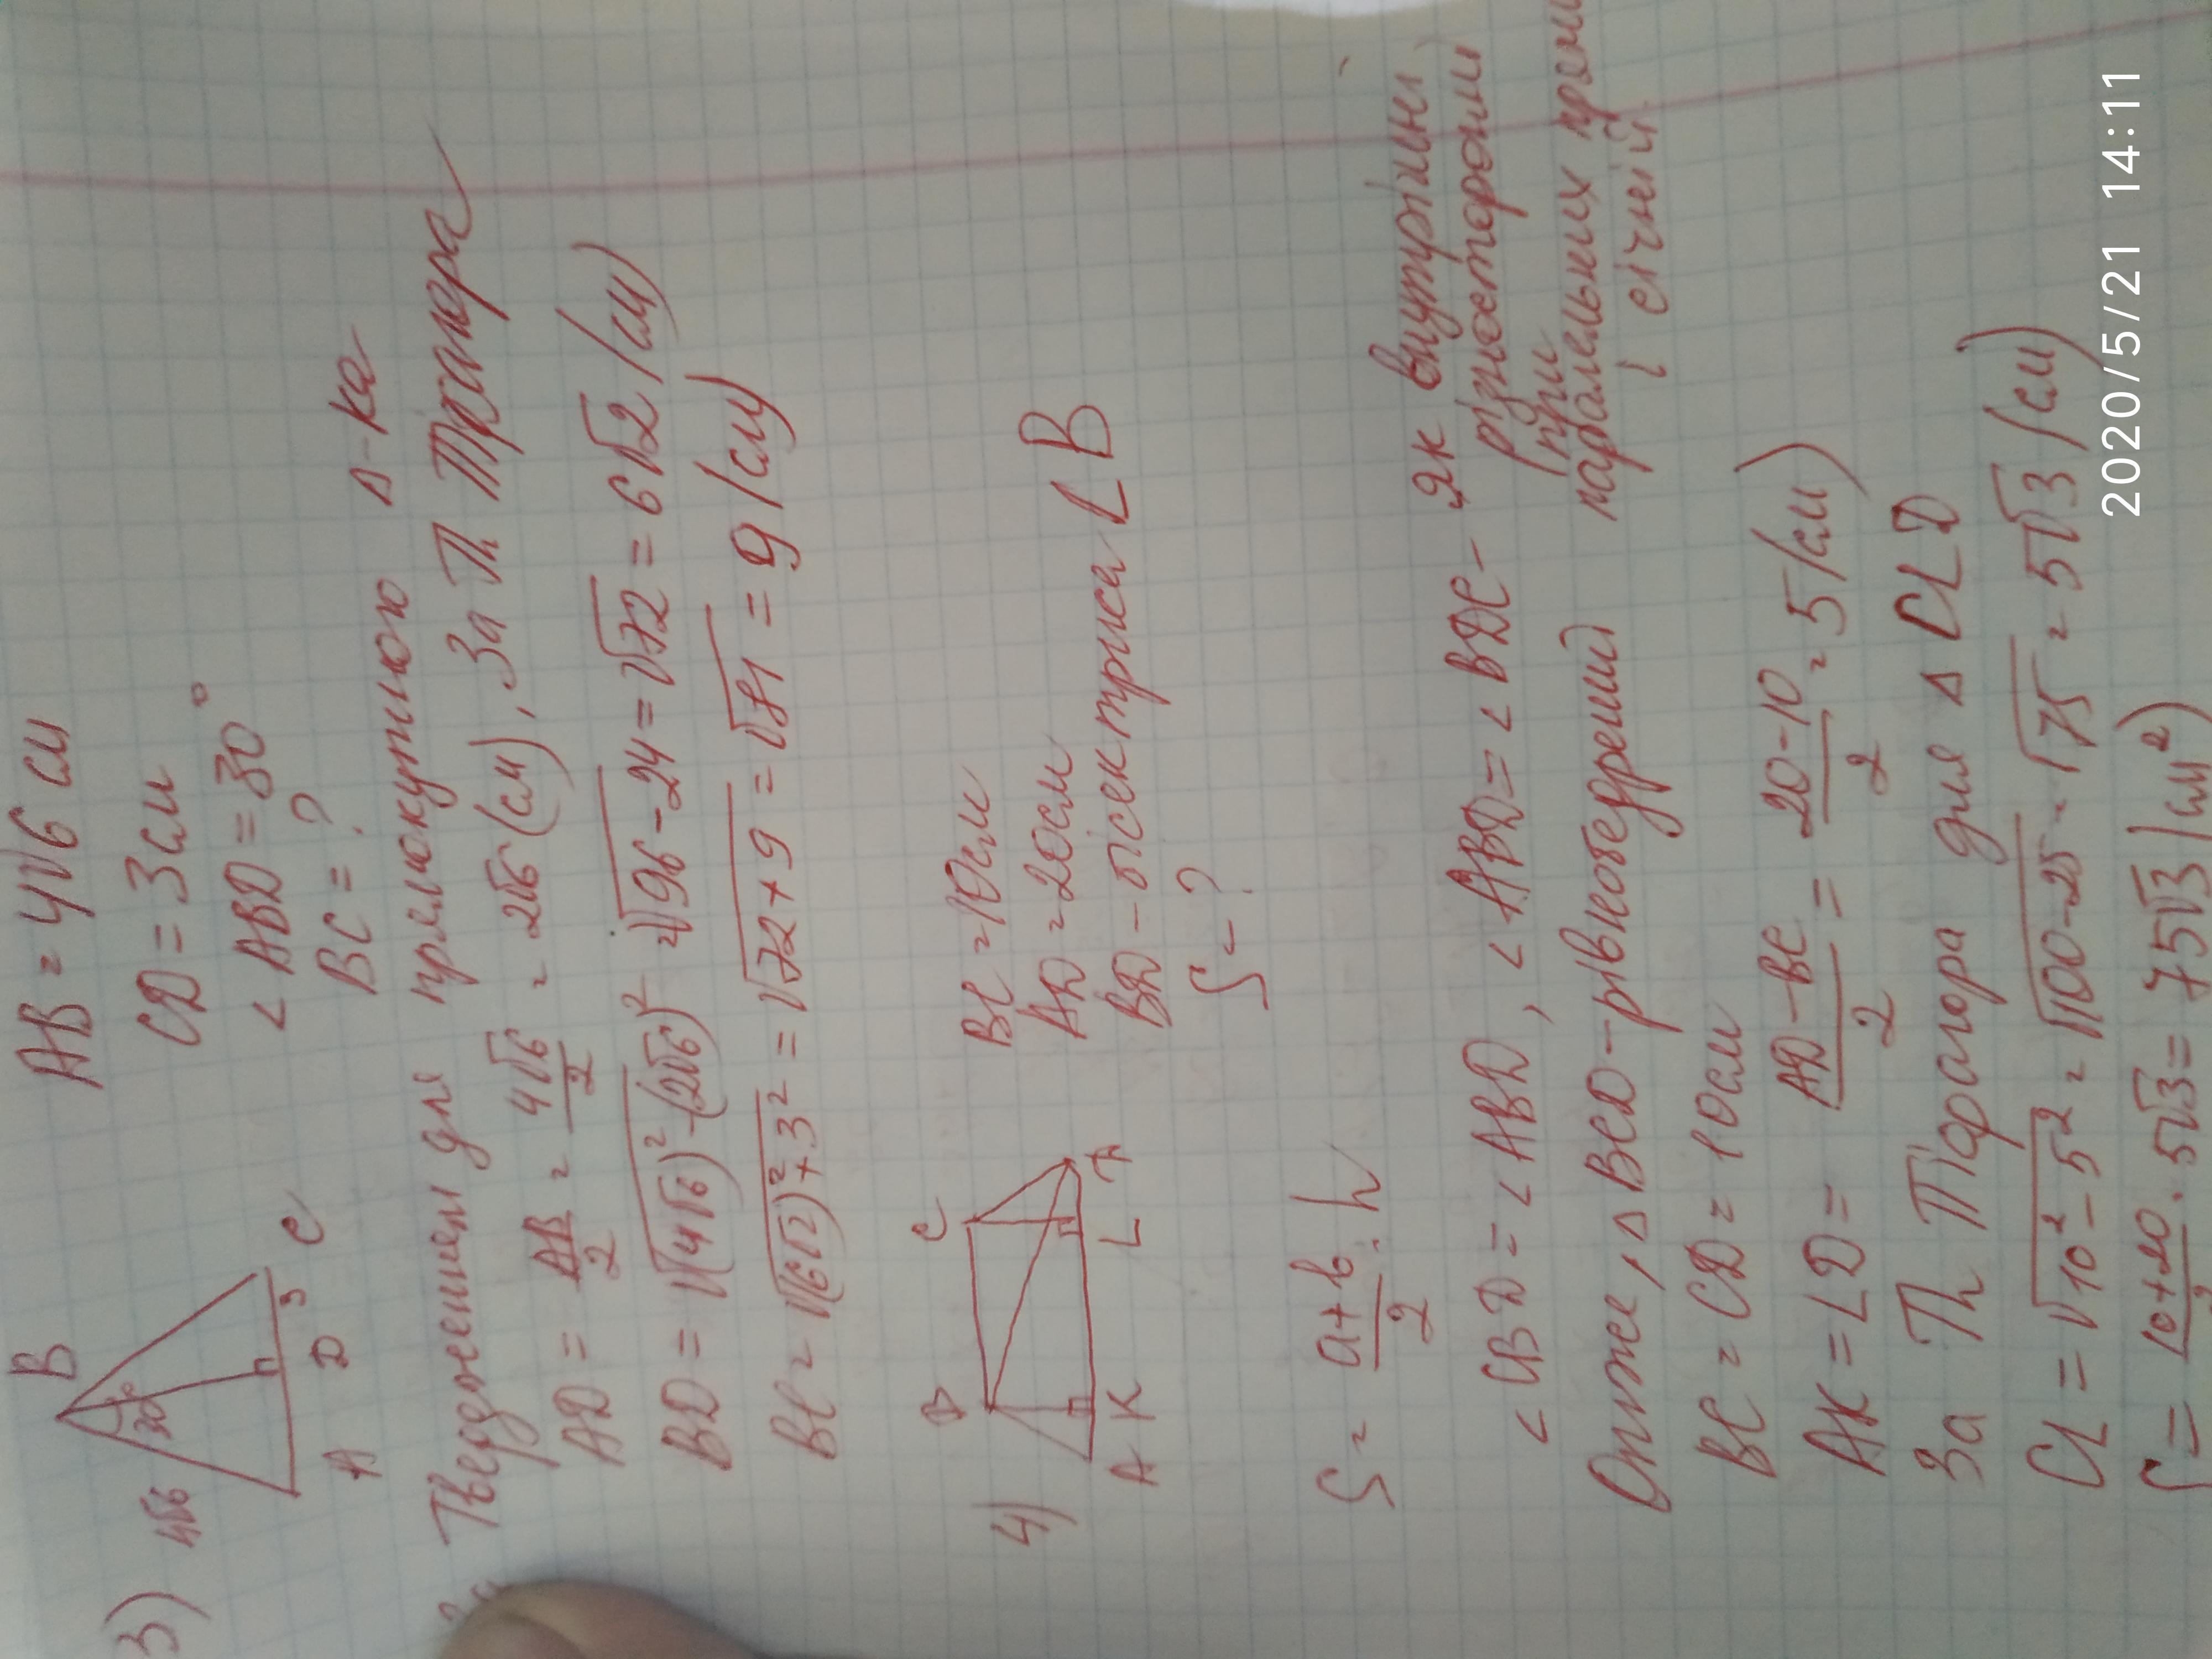 3)
4√6
B
30°
A
D
3
C
AB = 4√6 см
CD = 3 см
∠ ABD = 30°
BC = ?
За Твердженням для прямокутного Δ-ка
AD = AB/2 = 4√6/2 = 2√6 (см), За Th Піфагора
BD = √(4√6)² - (2√6)² = √96-24 = √72 = 6√2 (см)
BC = √(6√2)² + 3² = √72+9 = √81 = 9 (см)
4)
B
C
A
K
L
BC = 10см
AD = 20см
BD - бісектриса ∠ B
S - ?
S = a+b/2 · h
∠ CBD = ∠ ABD, ∠ ABD = ∠ BDC - як внутрішні
різносторонні
при
паралельних прями
і січній.
Отже, Δ BCD - рівнобедрений
BC = CD = 10см
AK = LD = AD-BC/2 = 20-10/2 = 5 (см)
За Th Піфагора для Δ CLD
CL = √10² - 5² = √100-25 = √75 = 5√3 (см)
S = 10+20/2 · 5√3 = 75√3 (см²)
2020/5/21 14:11